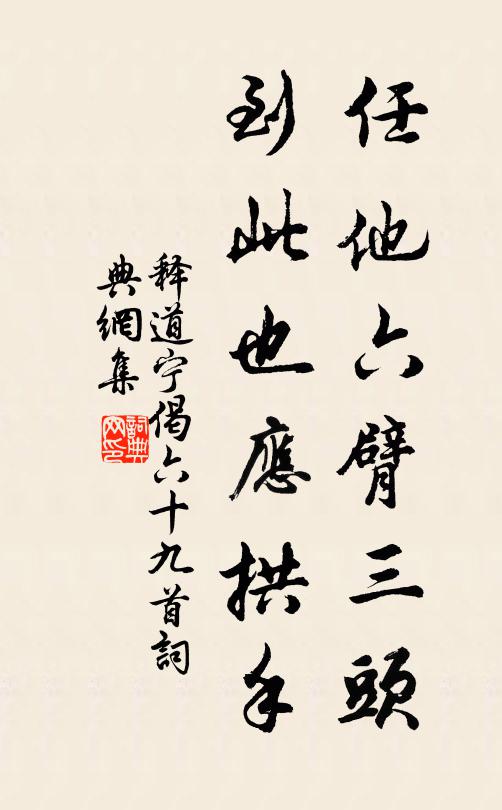 任他六臂三頭
到此也應拱手
释道宁偈六十九首詞
典網集
詞典
网印